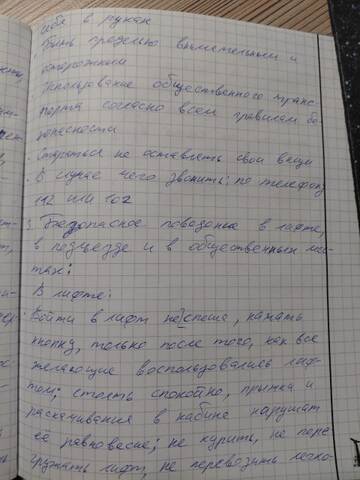 себя в руках
· Быть предельно внимательным и
осторожным
· Использование общественного транс-
порта согласно всем правилам бе-
зопасности
· Стараться не оставлять свои вещи
· В случае чего звонить: по телефону
112 или 102
3. Безопасное поведение в лифте,
в подъезде и в общественных мес-
тах:
В лифте:
Войти в лифт не спеша, нажать
кнопку, только после того, как все
желающие воспользовались лиф-
том; стоять спокойно, прыжки и
раскачивания в кабине нарушат
её равновесие; не курить, не пере-
гружать лифт, не перевозить легко-